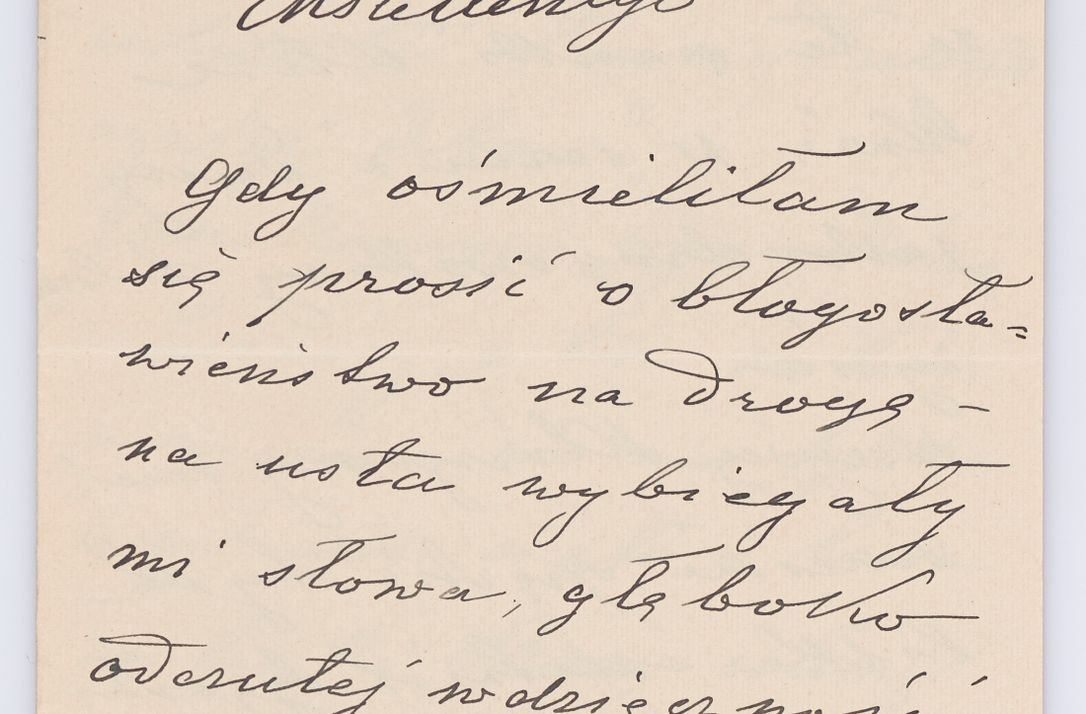 Gdy ośmieliłam
się prosić o błogosła=
wieństwo na drogę –
na usta wybiegały
mi słowa, głęboko
odczutej wdzięczności